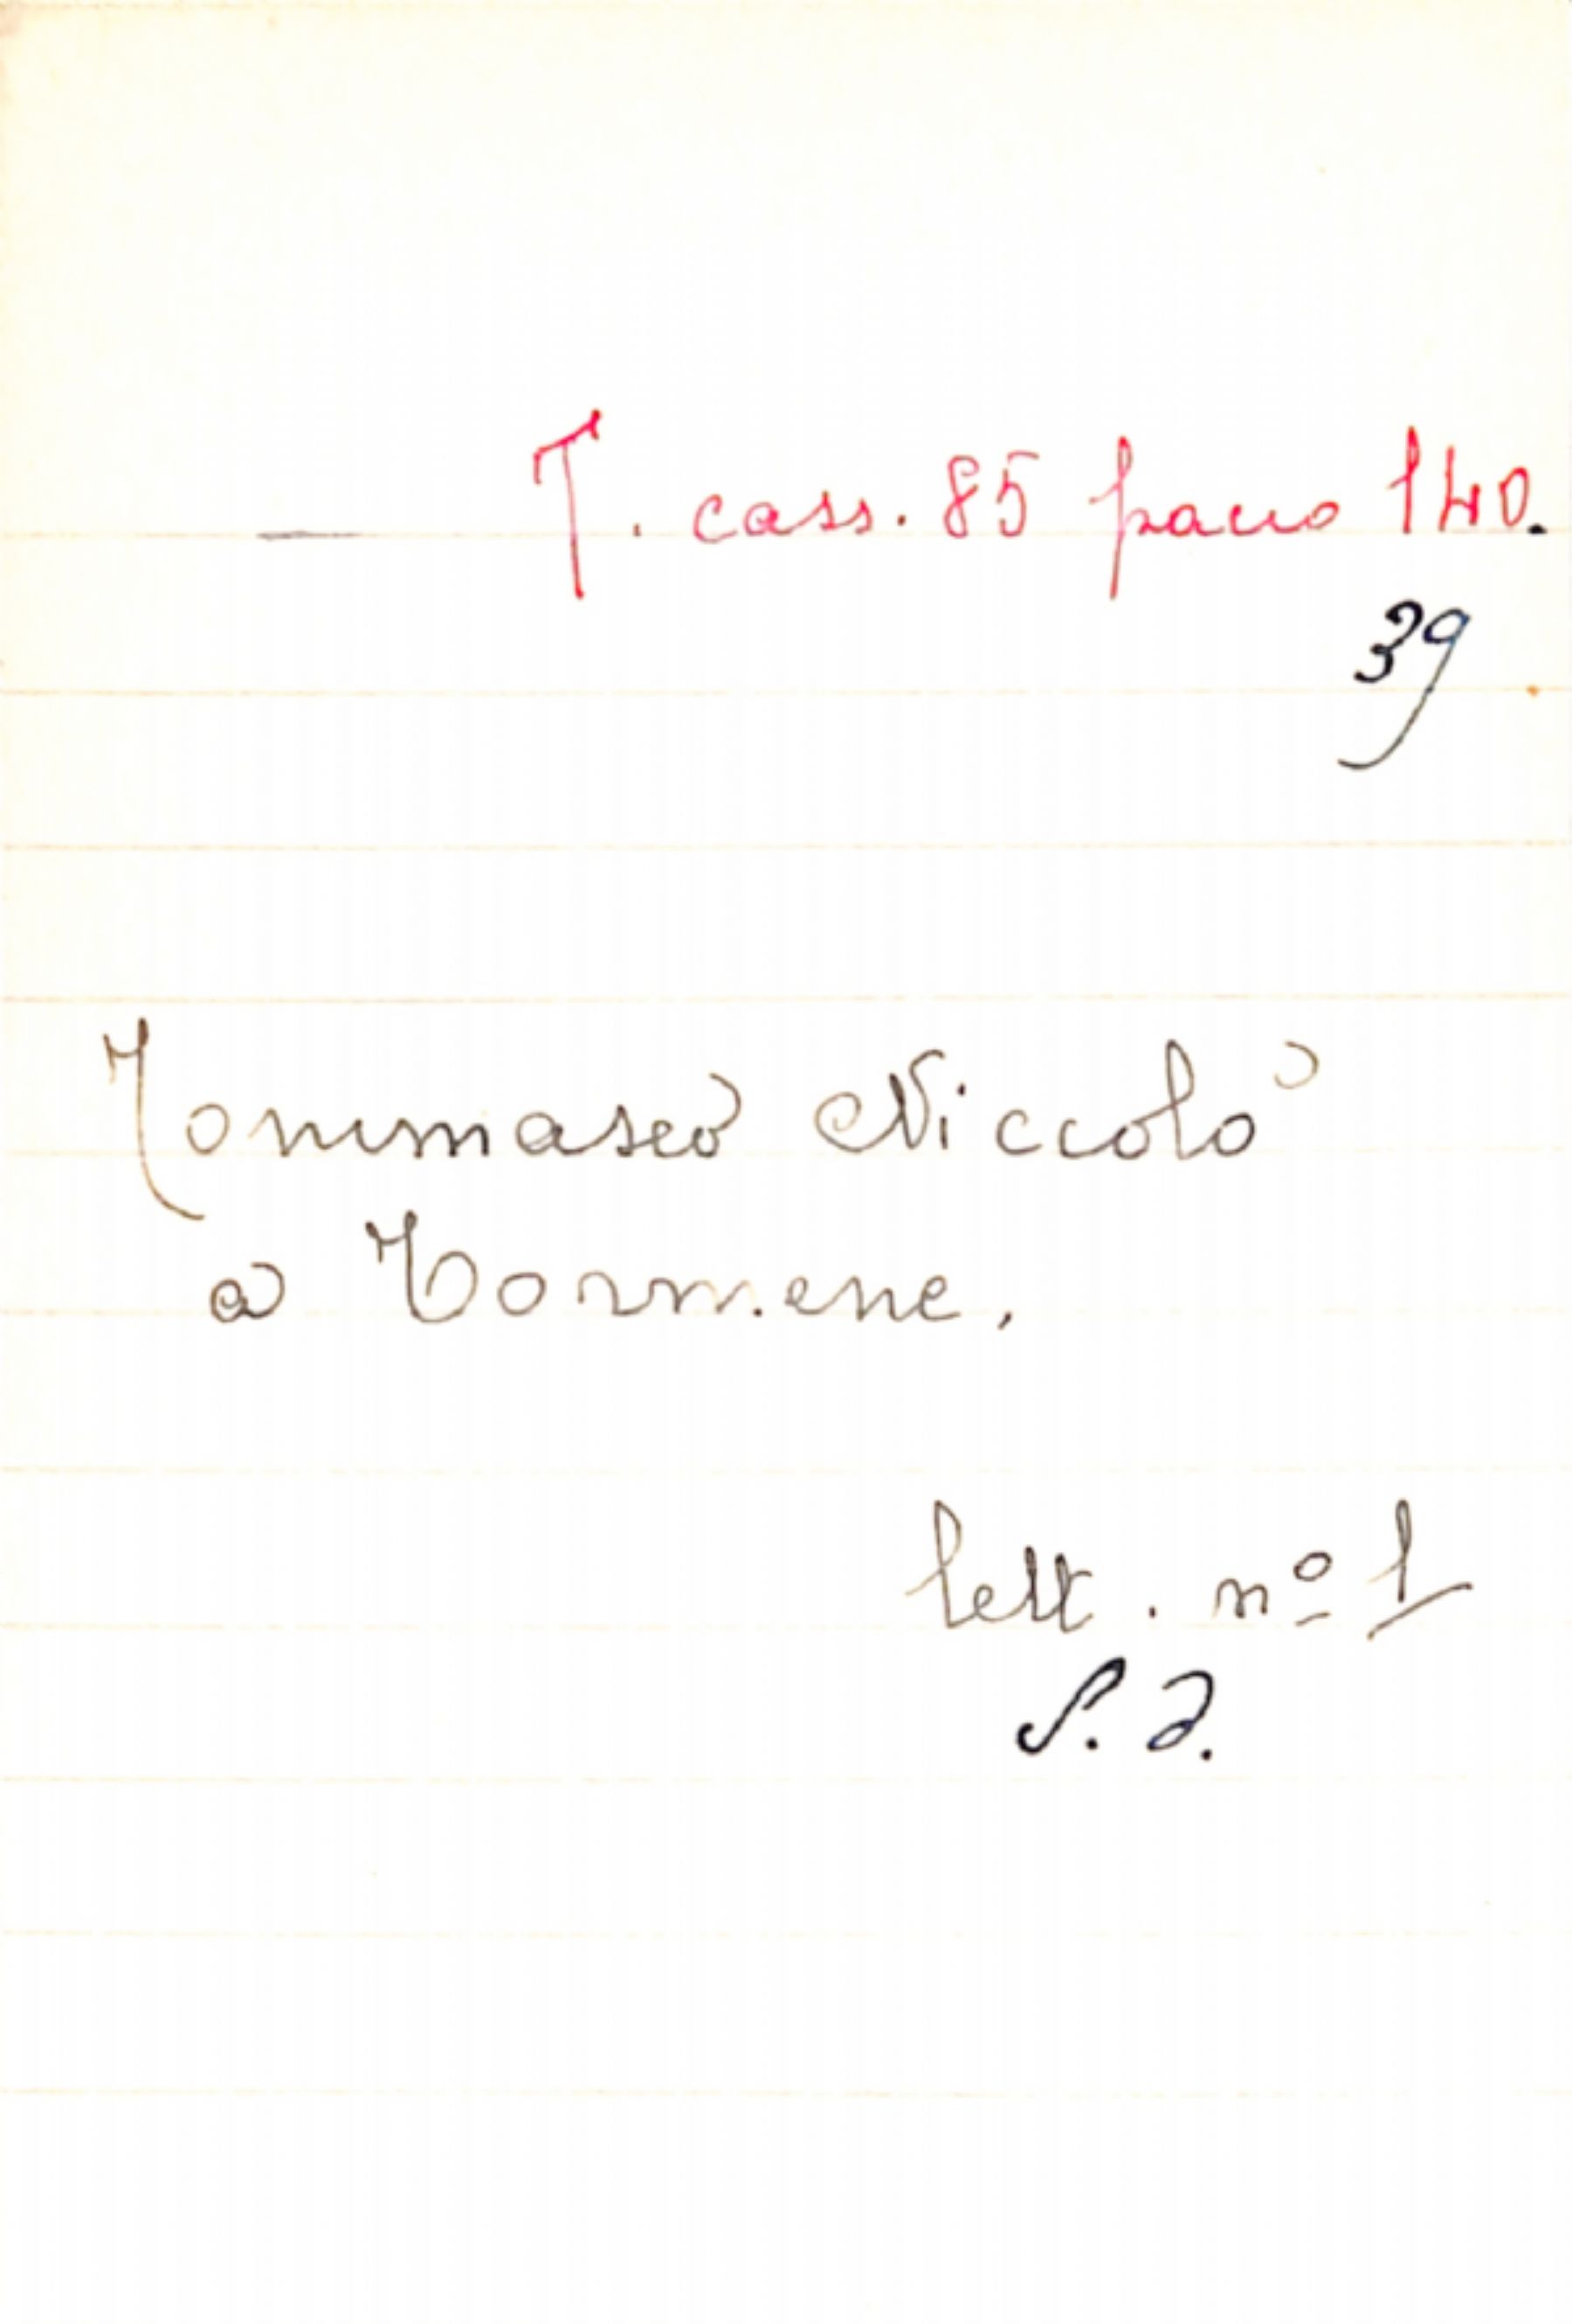 — T. cass. 85 pacco 140.
39
Tommaseo Niccolò
a Tormene.
lett. nº 1
S. d.